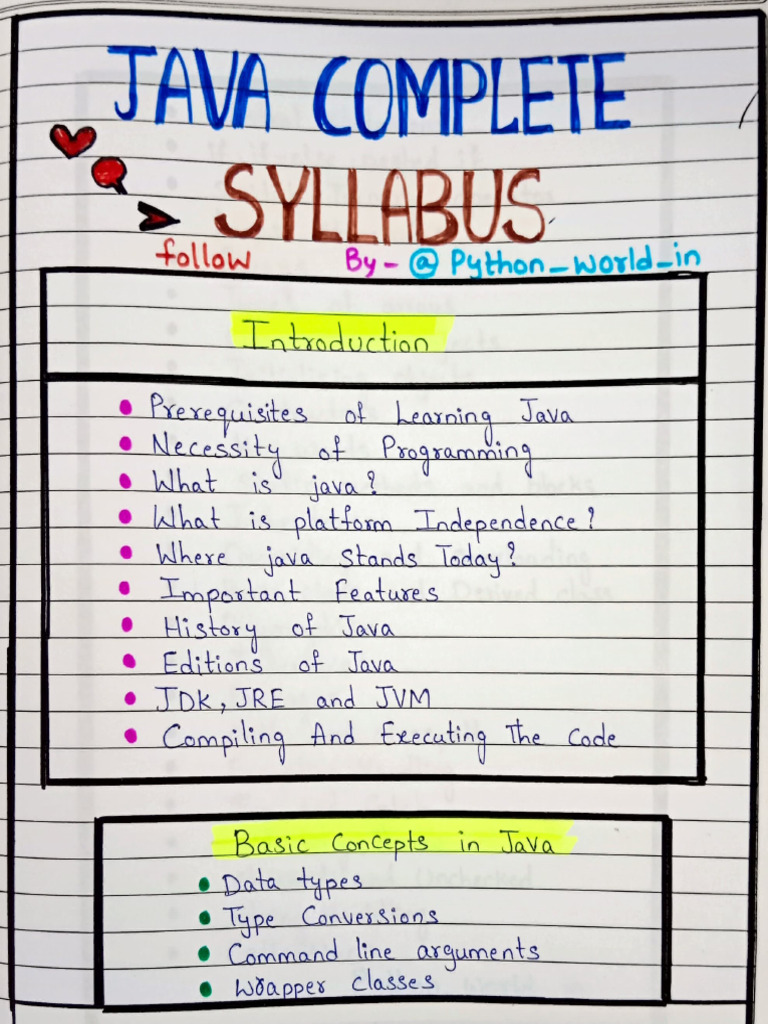 JAVA COMPLETE
SYLLABUS
follow By- @ Python_world_in
Introduction
Prerequisites of Learning Java
Necessity of Programming
What is java?
What is platform Independence?
Where java Stands Today?
Important Features
History of Java
Editions of Java
JDK, JRE and JVM
Compiling And Executing The Code
Basic Concepts in Java
Data types
Type Conversions
Command line arguments
Wrapper Classes